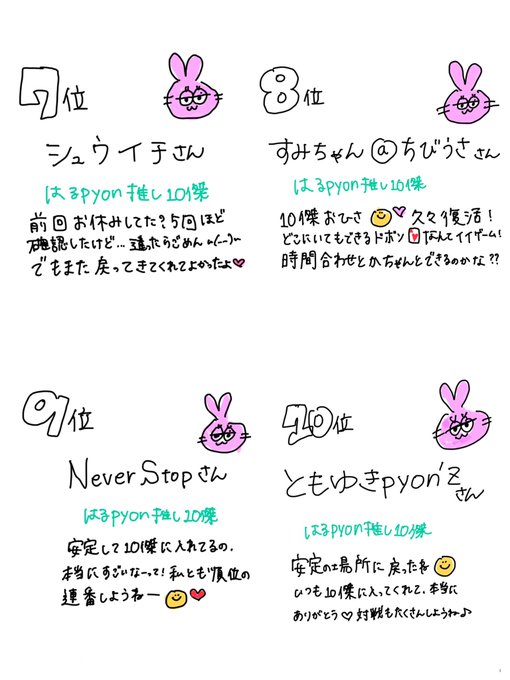 7位
シュウイチさん
はるpyon推し10傑
前回お休みしてた?5回ほど
確認したけど…違ったらごめんm(__)m
でもまた戻ってきてくれてよかったよ♥
8位
すみちゃん@ちびうささん
はるpyon推し10傑
10傑おひさ😊♥久々復活!
どこにいてもできるドボン🃏なんてイイゲーム!
時間合わせとかちゃんとできるのかな??
9位
Never Stopさん
はるpyon推し10傑
安定して10傑に入れてるの、
本当にすごいなーって!私とも順位の
連番しようねー😊♥
10位
ともゆきpyon'zさん
はるpyon推し10傑
安定の場所に戻ったね😊
いつも10傑に入ってくれて、本当に
ありがとう♡対戦もたくさんしようね♪